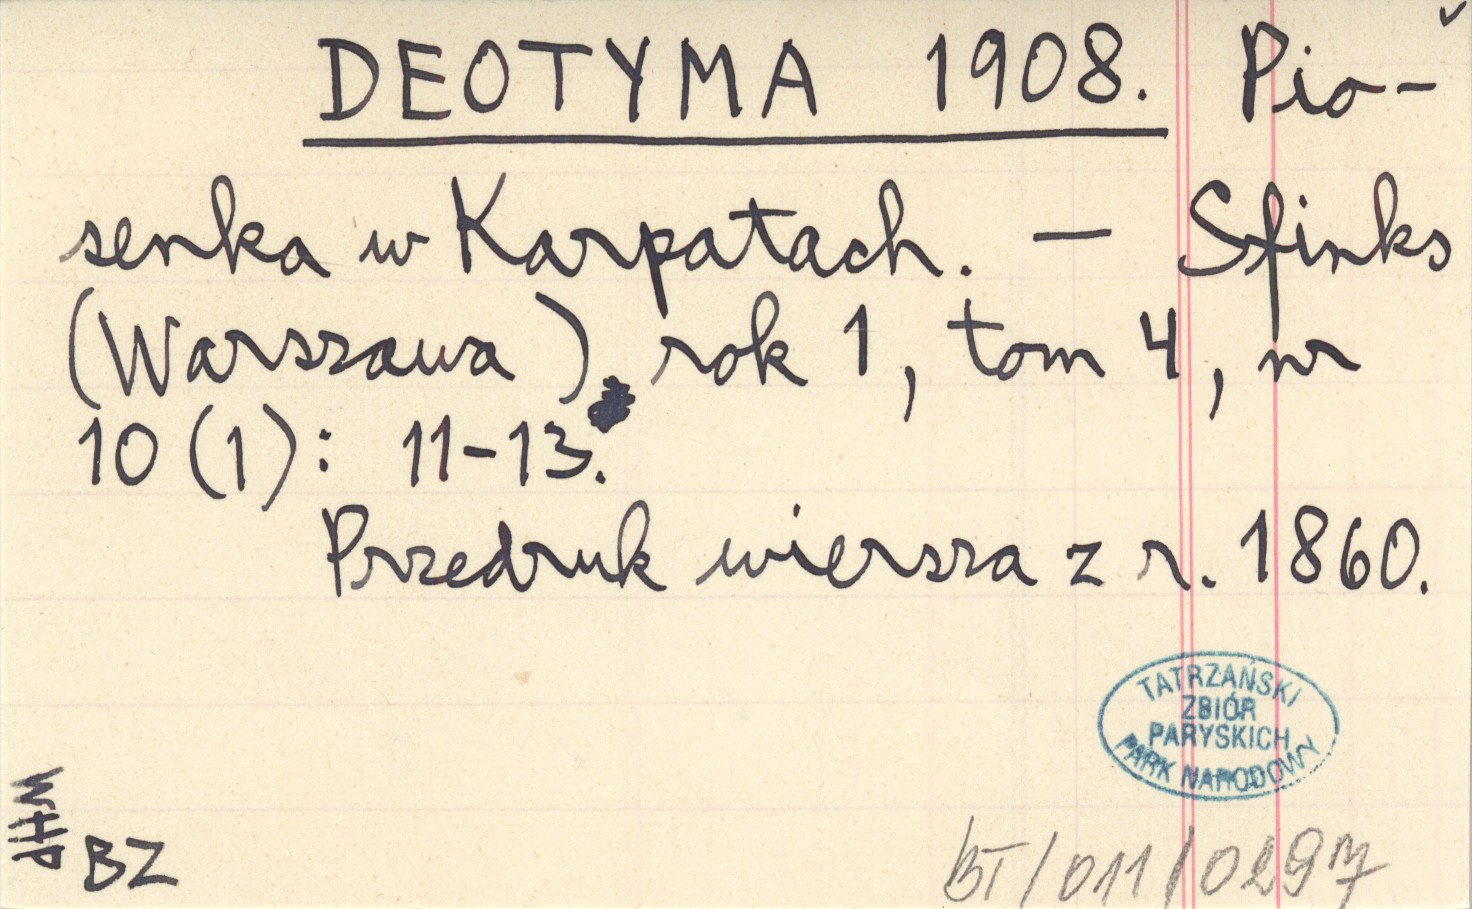 DEOTYMA 1908. Pio-
senka w Karpatach. — Sfinks
(Warszawa), rok 1, tom 4, nr
10 (1): 11-13.
Przedruk wiersza z r. 1860.
TATRZAŃSKI
ZBIÓR
PARYSKICH
PARK NARODOWY
BZ
BT/011/0297